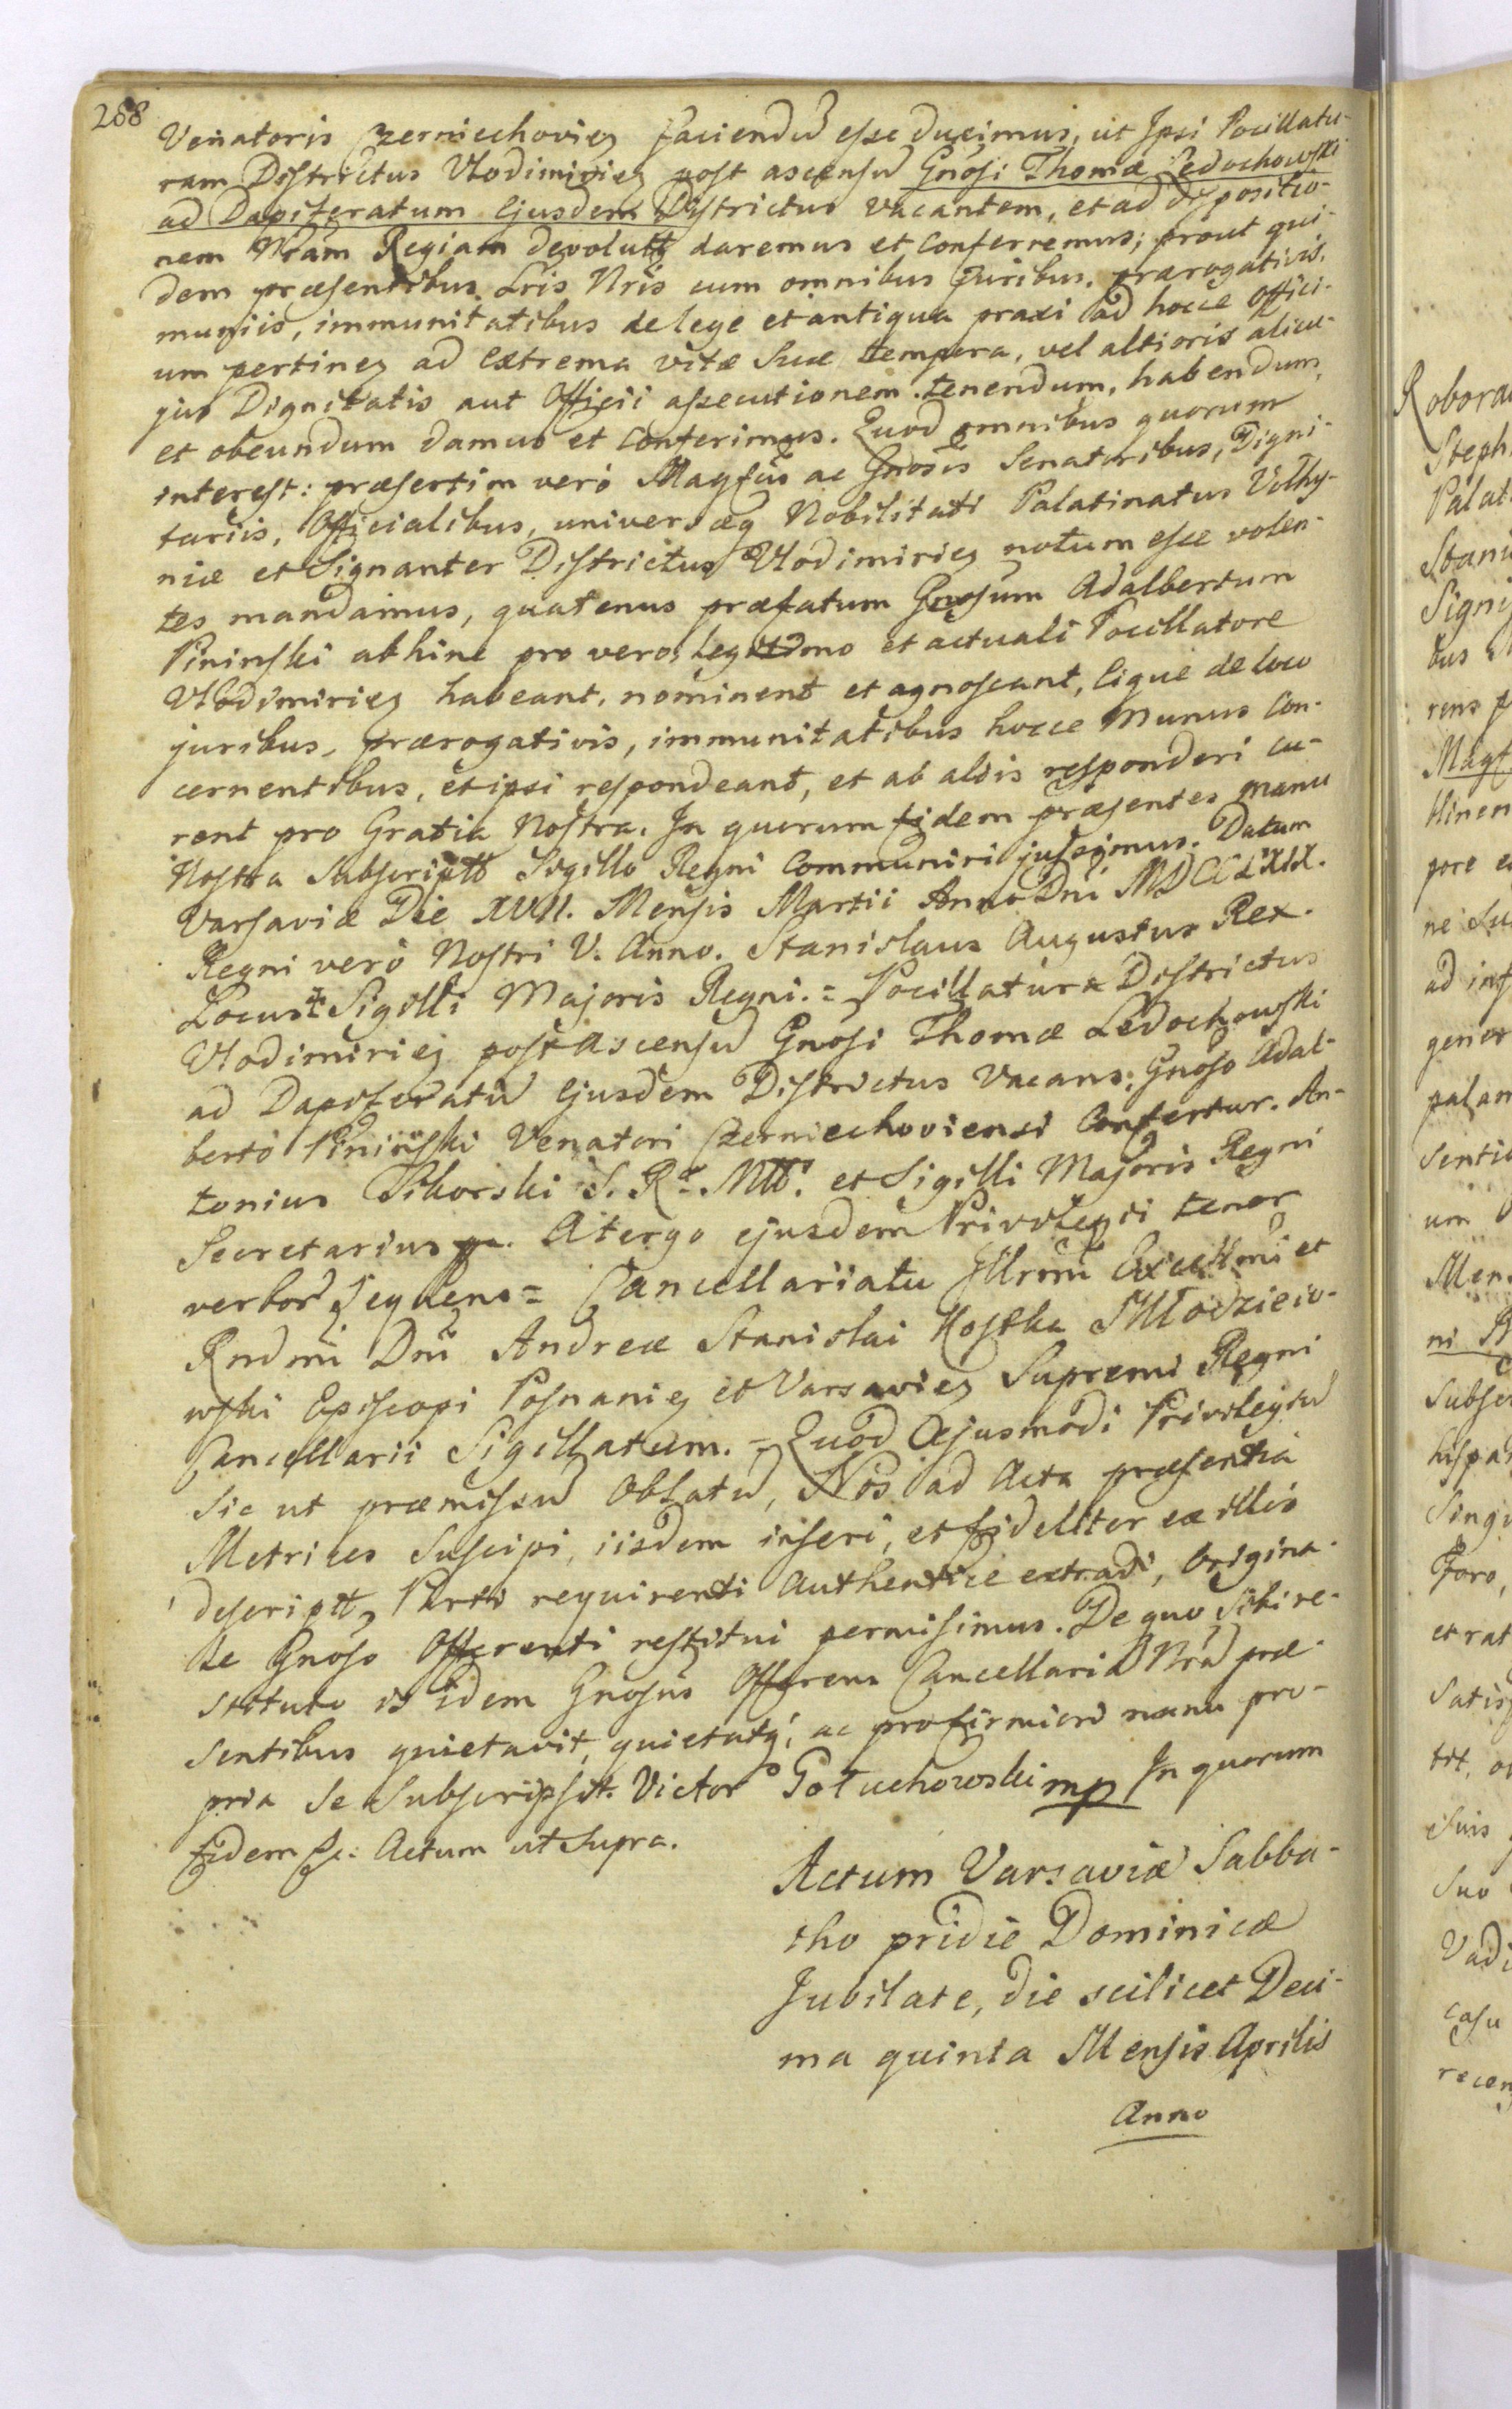 288
Venatoris Czerniechovien faciendũ esse duximus, ut Ipsi Pocillatu-
ram Districtus Vlodimirien post ascensũ Gnosi Thomæ Ledochowski
ad Dapiferatum Ejusdem Districtus vacantem, et ad dispositio-
nem Nram Regiam devolutã daremus et conferremus; prout qui-
dem præsentibus Lris Nris cum omnibus Juribus, prærogativis,
muniis, immunitatibus de lege et antiqua praxi ad hocce Offici-
um pertinen ad Extrema vitæ Suæ tempora, vel altioris alicu-
jus Dignitatis aut Officii assecutionem tenendum, habendum,
et obeundum damus et conferimus. Quod omnibus quorum
interest: præsertim verò Magfcis ac Gnosis Senatoribus, Digni-
tariis, Officialibus, universæq Nobilitati Palatinatus Volhy-
niæ et Signanter Districtus Vlodimirien notum esse volen-
tes mandamus, quatenus præfatum Gnosum Adalbertum
Pininski abhinc pro vero, legitimo et actuali Pocillatore
Vlodimirien habeant, nominent et agnoscant, Eique de loco
juribus, prærogativis, immunitatibus hocce munus con-
cernentibus, et ipsi respondeant, et ab aliis responderi cu-
rent pro Gratia Nostra. In quorum fidem præsentes manu
Nostra Subscriptas Sigillo Regni Communiri jussimus. Datum
Varsaviæ Die XVII. Mensis Martii Anno Dni MDCCLXIX.
Regni verò Nostri V. Anno. Stanislaus Augustus Rex.
Locus Sigilli Majoris Regni. = Pocillatura Districtus
Vlodimirien post Ascensũ Gnosi Thomæ Ledochowski
ad Dapiferatũ Ejusdem Districtus Vacans, Gnoso Adal-
berto Pininski Venatori Czerniechoviensi Confertur. An-
tonius Sikorski S. R. Mtt. et Sigilli Majoris Regni
Secretarius. A tergo ejusdem Privilegii tenor
verborũ Sequens = Cancellariatu Illrmi Excellmi et
Rndmi Dni Andreæ Stanislai Kostka Młodzieio-
wski Episcopi Posnanien et Varsavien Supremi Regni
Cancellarii Sigillatum. = Quod Ejusmodi Privilegiũ
sic ut præmissũ Oblatũ, Nos ad Acta præsentia
Metrices Suscipi, iisdem inseri, et fideliter ex illis
descriptũ, Parti requirenti Authentice extradi, Origina-
le Gnoso Offerenti restitui permisimus. De quo Sibi re-
stituto is idem Gnosus Offerens Cancellariã Nrã præ-
sentibus quietavit, quietatq; ac pro firmiori manu pro-
pria Se Subscripsit. Victor Gołuchowski mp In quorum
fidem &c: Actum ut Supra.
Actum Varsaviæ Sabba-
tho pridie Dominicæ
Jubilate, die scilicet Deci-
ma quinta Mensis Aprilis
Anno
Robora
Steph
Palat
Stani
Signi
bus
rens
Magf
tinen
pore
ne
ad
gener
palam
Senti
um
Men
ni
Subsc
Singu
Foro,
et rat
Satis
tit,
suis
suo
Vadi
casu
recen